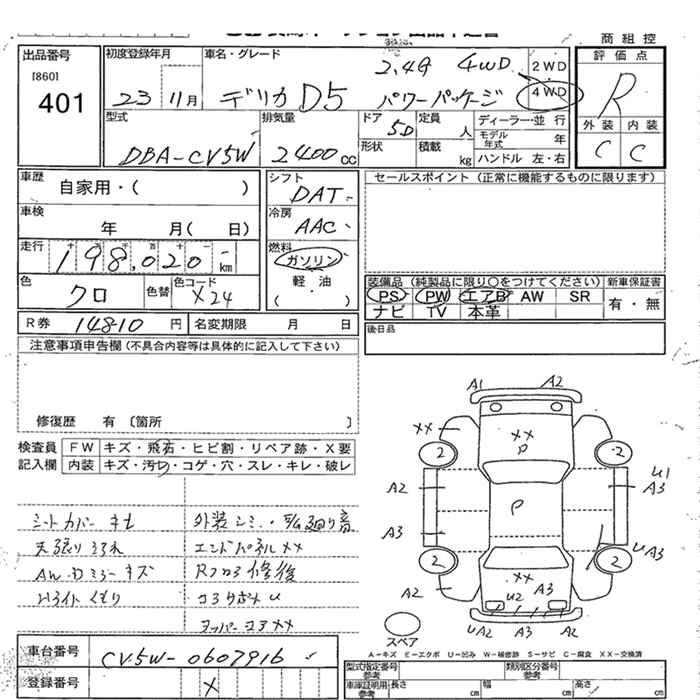 商組控
出品番号
[860]
401
初度登録年月
23 11月
車名・グレード
2,4G 4WD
デリカ D5 パワーパッケージ
2WD
4WD
評価点
R
外装 内装
C C
型式
DBA-CV5W
排気量
2400cc
ドア
5D
定員
人
形状
積載
kg
ディーラー・並 行
モデル年式
年
ハンドル 左・右
車歴
自家用・( )
車検
年 月( 日)
走行
198,020 km
色
クロ
色替
色コード
X24
シフト
DAT
冷房
AAC
燃料
ガソリン
軽・油
( )
セールスポイント (正常に機能するものに限ります)
装備品 (純製品に限り○をつけてください)
新車保証書
PS PW エアB AW SR
有・無
ナビ TV 本革
R券 14810 円
名変期限 月 日
後日品
注意事項申告欄 (不具合内容等は具体的に記入して下さい)
修復歴 有 〔箇所 〕
検査員
記入欄
FW キズ・飛石・ヒビ割・リペア跡・X要
内装 キズ・汚れ・コゲ・穴・スレ・キレ・破レ
シートカバー キセ
外装シミ
エンドパネル XX
AW・Dミラーキズ
修後
Hライトくもり
コアXX
A1 A2
XX
XX
P
2 2
A2
U1
A3
P
A3
U A3
2 2
XX
A3
A2
U2
U A2 A3 A2
スペア
A-キズ E-エクボ U-凹み W-補修跡 S-サビ C-腐食 XX-交換済
車台番号
CV5W-0607916
登録番号
X
型式指定番号
類別区分番号
車庫証明用参考
長さ cm
幅 cm
高さ cm